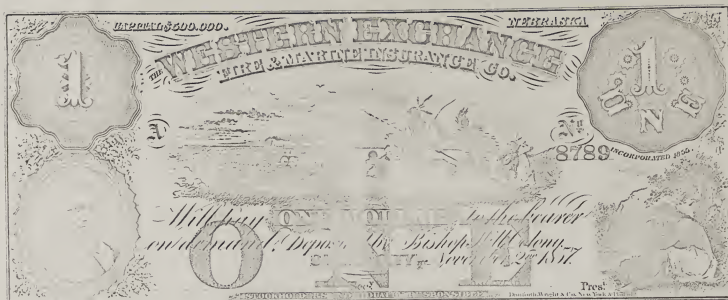 CAPITAL $500.000.
NEBRASKA
THE WESTERN EXCHANGE
FIRE & MARINE INSURANCE CO.
1
1
ONE
A
No
8789
INCORPORATED 1855.
Will pay ONE DOLLAR to the bearer
on demand Bishop Hill Colony
November 2nd
ONE
STOCKHOLDERS INDIVIDUALLY RESPONSIBLE
Prest
Danforth, Wright & Co. New York &